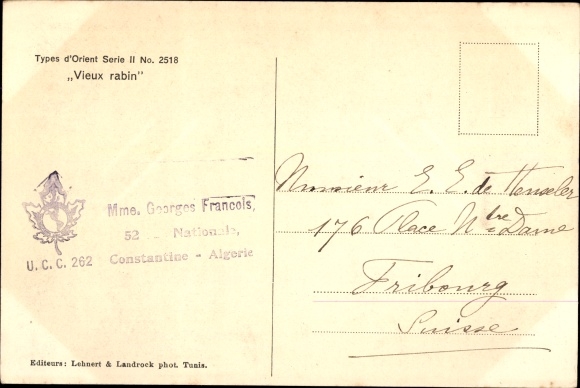 Types d'Orient Serie II No. 2518
„Vieux rabin"
Mme. Georges Francois,
52 - Nationale,
U. C. C. 262 Constantine - Algerie
Monsieur E. E. de Henseler
176 Place Nbre Dame
Fribourg
Suisse
Editeurs: Lehnert & Landrock phot. Tunis.